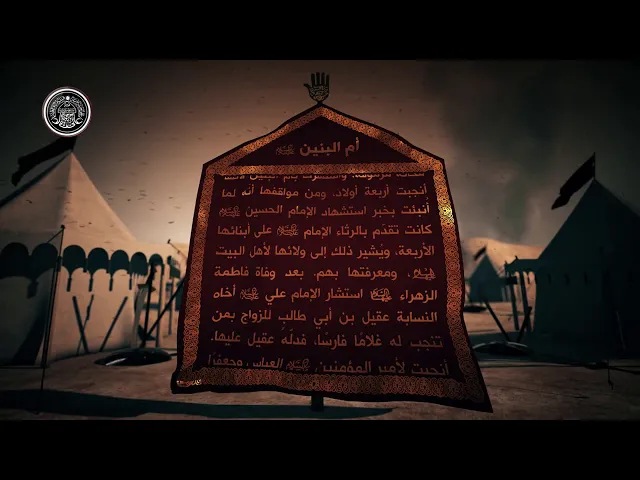 أم البنين
أنجبت أربعة أولاد. ومن مواقفها أنه لما
أنبئت بخبر استشهاد الإمام الحسين
كانت تقدّم بالرثاء الإمام على أبنائها
الأربعة، ويُشير ذلك إلى ولائها لأهل البيت
، ومعرفتها بهم. بعد وفاة فاطمة
الزهراء استشار الإمام علي أخاه
النسابة عقيل بن أبي طالب للزواج بمن
تنجب له غلامًا فارسًا، فدلّه عقيل عليها.
أنجبت لأمير المؤمنين العباس، وجعفرًا